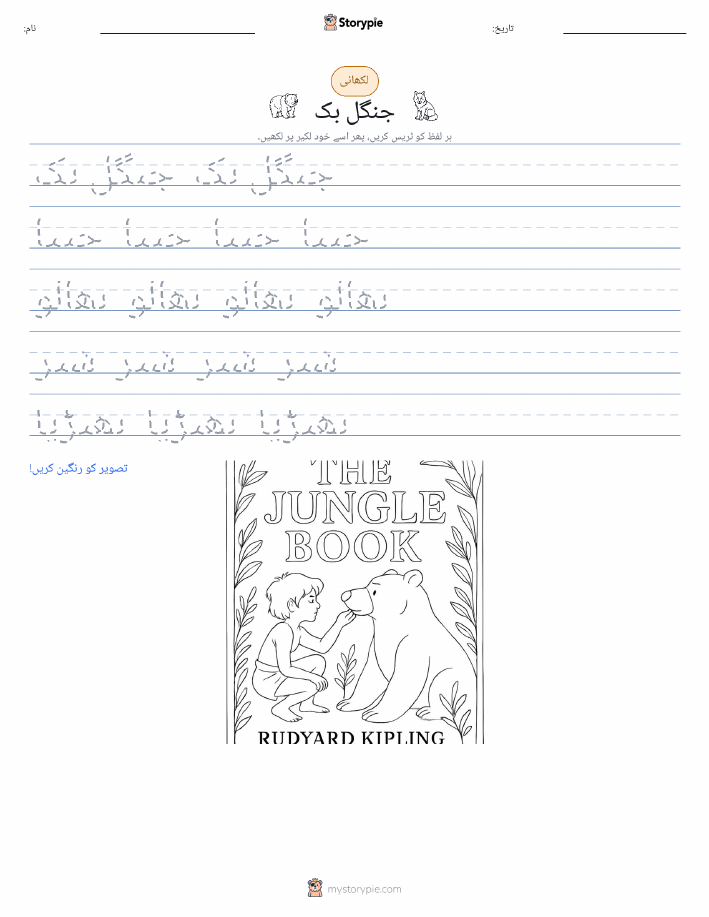 Storypie
نام:
تاریخ:
لکھائی
جنگل بک
ہر لفظ کو ٹریس کریں، پھر اسے خود لکیر پر لکھیں۔
جنگل بک جنگل بک
چیتا چیتا چیتا چیتا
بھالو بھالو بھالو بھالو
شیر شیر شیر شیر
بھیڑیا بھیڑیا بھیڑیا
تصویر کو رنگین کریں!
THE
JUNGLE
BOOK
RUDYARD KIPLING
mystorypie.com